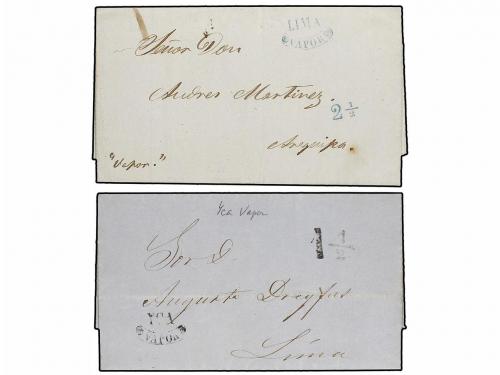 LIMA
VAPOR
Señor Don
Andres Martinez.
2 1/2
Arequipa.
"Vapor."
Yca Vapor
1 1/2
Sor D.
Augusto Dreyfus
YCA
VAPOR
Lima